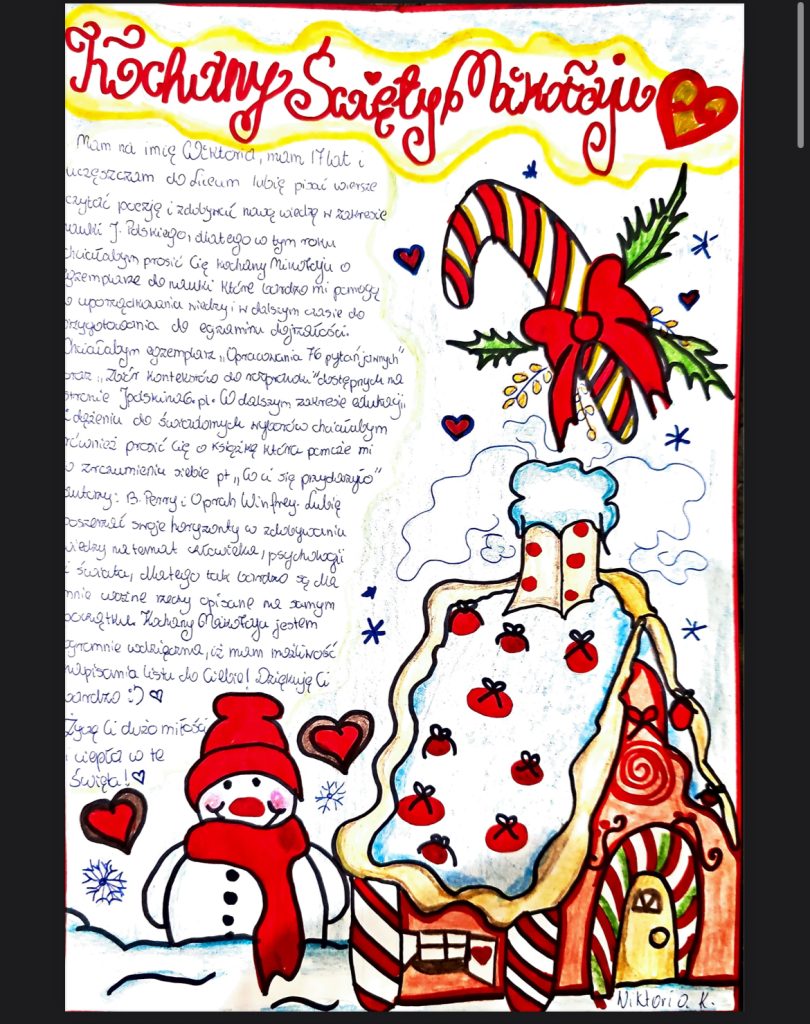 Kochany Święty Mikołaju
Mam na imię Wiktoria, mam 17 lat i
uczęszczam do Liceum lubię pisać wiersze
czytać poezję i zdobywać nową wiedzę w zakresie
nauki J. Polskiego, dlatego w tym roku
chciałabym prosić Cię kochany Mikołaju o
egzemplarze do nauki które bardzo mi pomogą
w uporządkowaniu wiedzy i w dalszym czasie do
przygotowania do egzaminu dojrzałości.
Chciałabym egzemplarz „Opracowania 76 pytań jawnych"
oraz „Zbiór kontekstów do rozprawki" dostępnych na
stronie Jpolskina6.pl. W dalszym zakresie edukacji
i dążeniu do świadomych wyborów chciałabym
również prosić Cię o książkę która pomoże mi
w zrozumieniu siebie pt „Co ci się przydarzyło"
autorzy: B. Perry i Oprah Winfrey. Lubię
poszerzać swoje horyzonty w zdobywaniu
wiedzy na temat człowieka, psychologii
i świata, dlatego tak bardzo są dla
mnie ważne rzeczy opisane na samym
początku. Kochany Mikołaju jestem
ogromnie wdzięczna, iż mam możliwość
napisania listu do Ciebie! Dziękuję Ci
bardzo :)
Życzę Ci dużo miłości
i ciepła w te
święta!
Wiktoria K.